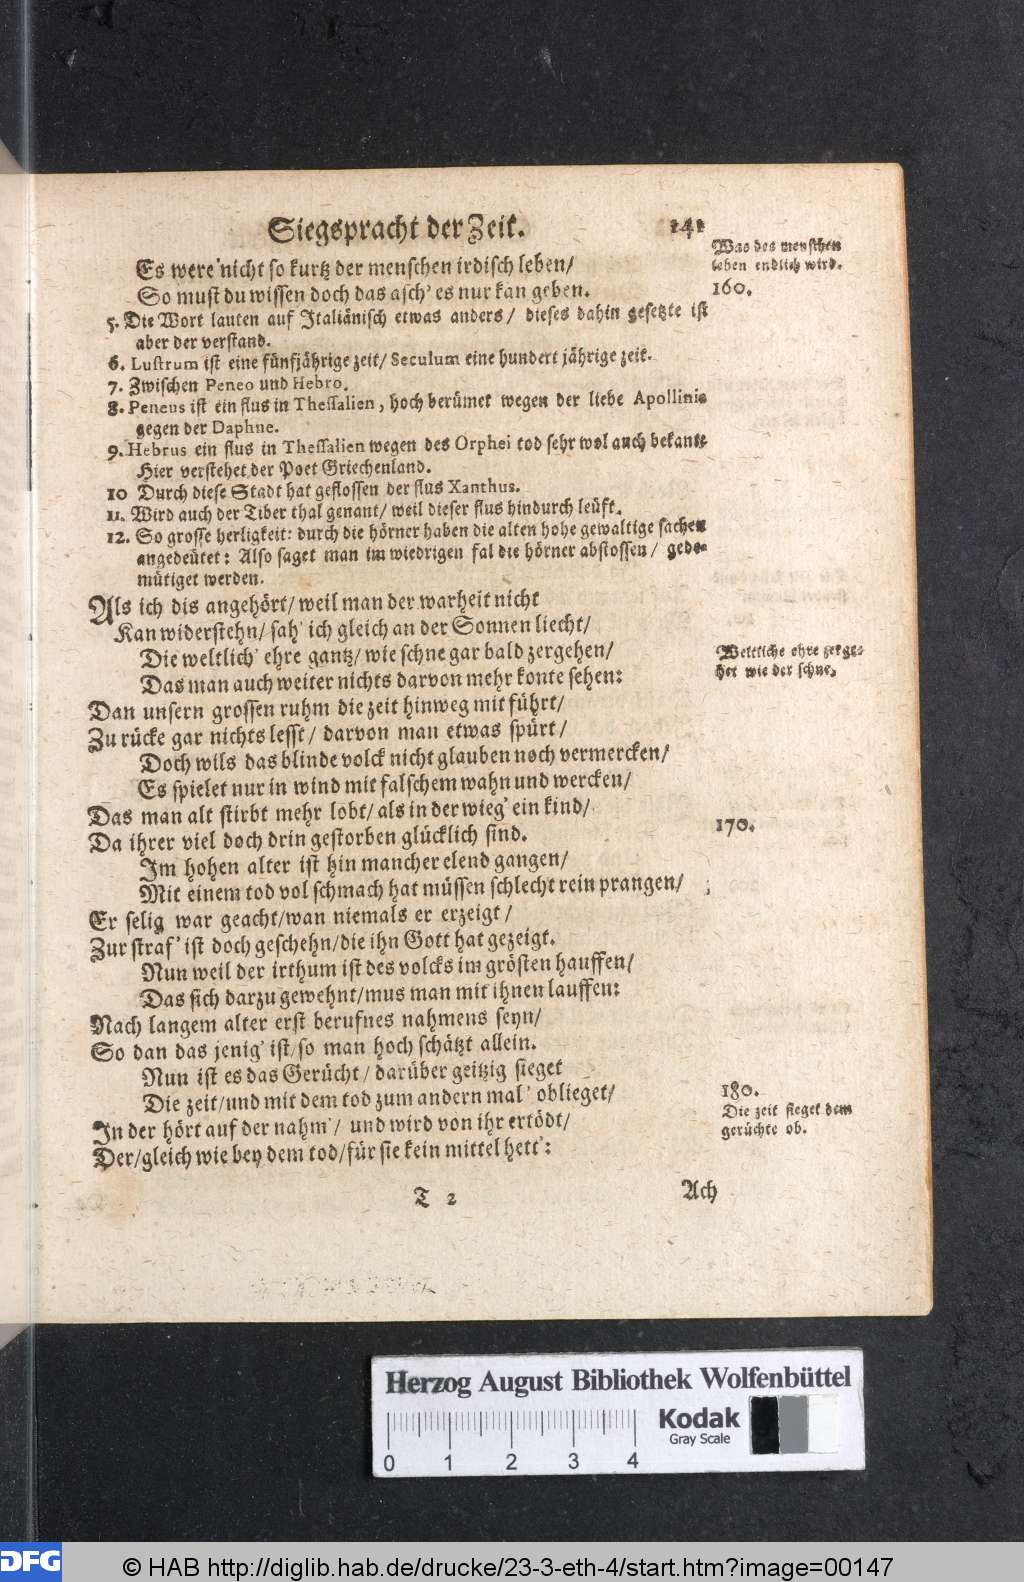 Siegspracht der Zeit. 141
Es were nicht so kurtz der menschen irdisch leben/
Was des menschen
leben endlich wird.
So must du wissen doch das asch' es nur kan geben.
160.
5. Die Wort lauten auf Italiänisch etwas anders/ dieses dahin gesetzte ist
aber der verstand.
6. Lustrum ist eine fünfjährige zeit/ Seculum eine hundert jährige zeit.
7. Zwischen Peneo und Hebro.
8. Peneus ist ein flus in Thessalien, hoch berümet wegen der liebe Apollinis
gegen der Daphne.
9. Hebrus ein flus in Thessalien wegen des Orphei tod sehr wol auch bekant
Hier verstehet der Poet Griechenland.
10 Durch diese Stadt hat geflossen der flus Xanthus.
11. Wird auch der Tiber thal genant/ weil dieser flus hindurch leüft.
12. So grosse herligkeit: durch die hörner haben die alten hohe gewaltige sachen
angedeütet: Also saget man im wiedrigen fal die hörner abstossen/ gede-
mütiget werden.
Als ich dis angehört/ weil man der warheit nicht
Kan widerstehn/ sah' ich gleich an der Sonnen liecht/
Die weltlich' ehre gantz/ wie schne gar bald zergehen/
Weltliche ehre zerge-
het wie der schne.
Das man auch weiter nichts darvon mehr konte sehen:
Dan unsern grossen ruhm die zeit hinweg mit führt/
Zu rücke gar nichts lesst/ darvon man etwas spürt/
Doch wils das blinde volck nicht glauben noch vermercken/
Es spielet nur in wind mit falschem wahn und wercken/
Das man alt stirbt mehr lobt/ als in der wieg' ein kind/
Da ihrer viel doch drin gestorben glücklich sind.
170.
Im hohen alter ist hin mancher elend gangen/
Mit einem tod vol schmach hat müssen schlecht rein prangen/
Er selig war geacht/wan niemals er erzeigt/
Zur straf' ist doch geschehn/die ihn Gott hat gezeigt.
Nun weil der irthum ist des volcks im grösten hauffen/
Das sich darzu gewehnt/mus man mit ihnen lauffen:
Nach langem alter erst berufnes nahmens seyn/
So dan das jenig' ist/so man hoch schätzt allein.
Nun ist es das Gerücht/ darüber geitzig sieget
Die zeit/und mit dem tod zum andern mal' oblieget/
180.
Die zeit sieget dem
gerüchte ob.
In der hört auf der nahm'/ und wird von ihr ertödt/
Der/gleich wie bey dem tod/für sie kein mittel hett':
T 2 Ach
Herzog August Bibliothek Wolfenbüttel
Kodak
Gray Scale
0 1 2 3 4
DFG © HAB http://diglib.hab.de/drucke/23-3-eth-4/start.htm?image=00147